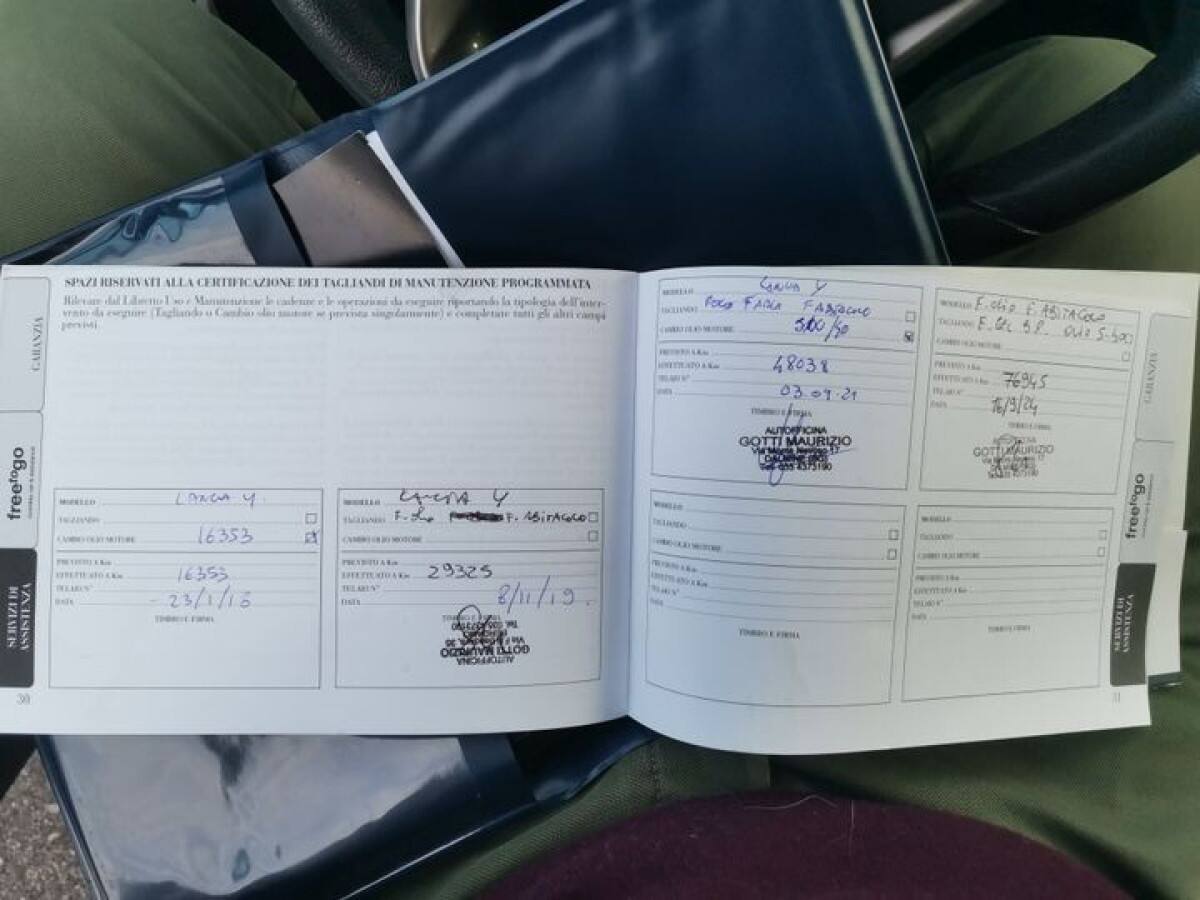 SPAZI RISERVATI ALLA CERTIFICAZIONE DEI TAGLIANDI DI MANUTENZIONE PROGRAMMATA
Rilevare dal Libretto Uso e Manutenzione le cadenze e le operazioni da eseguire riportando la tipologia dell'inter-
vento da eseguire (Tagliando o Cambio olio motore se prevista singolarmente) e completare tutti gli altri campi
previsti.
GARANZIA
freetogo
SERVIZI DI
ASSISTENZA
MODELLO LANCIA Y.
TAGLIANDO
CAMBIO OLIO MOTORE 16353
PREVISTO A Km
EFFETTUATO A Km 16353
TELAIO N°
DATA 23/1/16
TIMBRO E FIRMA
MODELLO LANCIA Y
TAGLIANDO F. olio F. ABITACOLO
CAMBIO OLIO MOTORE
PREVISTO A Km
EFFETTUATO A Km 29325
TELAIO N°
DATA 8/11/19.
TIMBRO E FIRMA
AUTOFFICINA
GOTTI MAURIZIO
30
MODELLO LANCIA Y
TAGLIANDO
CAMBIO OLIO MOTORE
PREVISTO A Km
EFFETTUATO A Km 48038
TELAIO N°
DATA 03.09.21
TIMBRO E FIRMA
AUTOFFICINA
GOTTI MAURIZIO
Tel. 035 4373190
MODELLO F. olio F. ABITACOLO
TAGLIANDO
CAMBIO OLIO MOTORE
PREVISTO A Km
EFFETTUATO A Km 76945
TELAIO N°
DATA 16/9/24
TIMBRO E FIRMA
GOTTI MAURIZIO
MODELLO
TAGLIANDO
CAMBIO OLIO MOTORE
PREVISTO A Km
EFFETTUATO A Km
TELAIO N°
DATA
TIMBRO E FIRMA
MODELLO
TAGLIANDO
CAMBIO OLIO MOTORE
PREVISTO A Km
EFFETTUATO A Km
TELAIO N°
DATA
TIMBRO E FIRMA
31
GARANZIA
freetogo
SERVIZI DI
ASSISTENZA